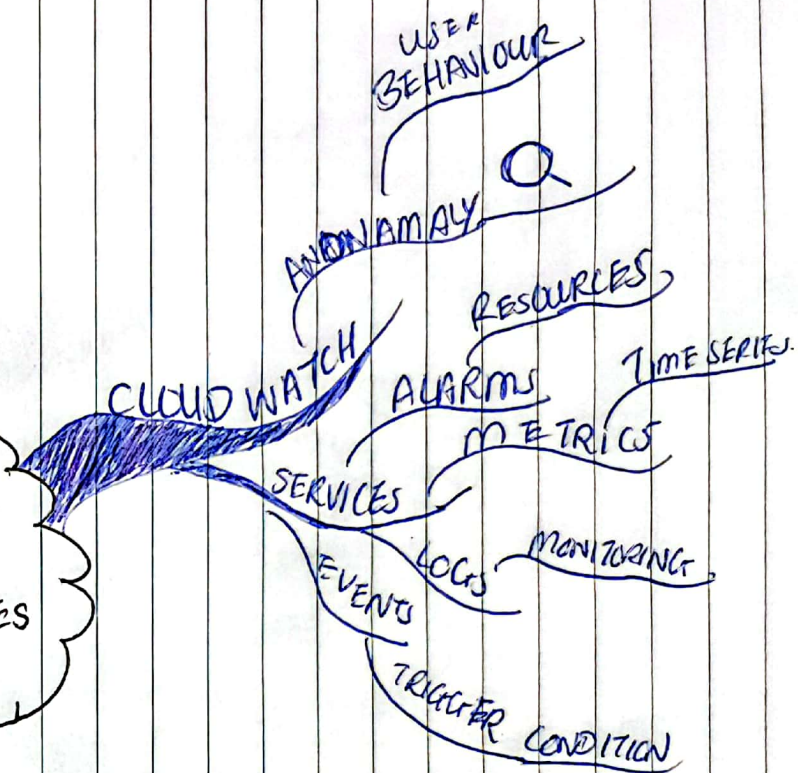 USER
BEHAVIOUR
ANONAMALY
RESOURCES
TIME SERIES.
CLOUD WATCH
ALARMS
METRICS
SERVICES
LOGS
MONITORING
EVENTS
ES
TRIGGER CONDITION